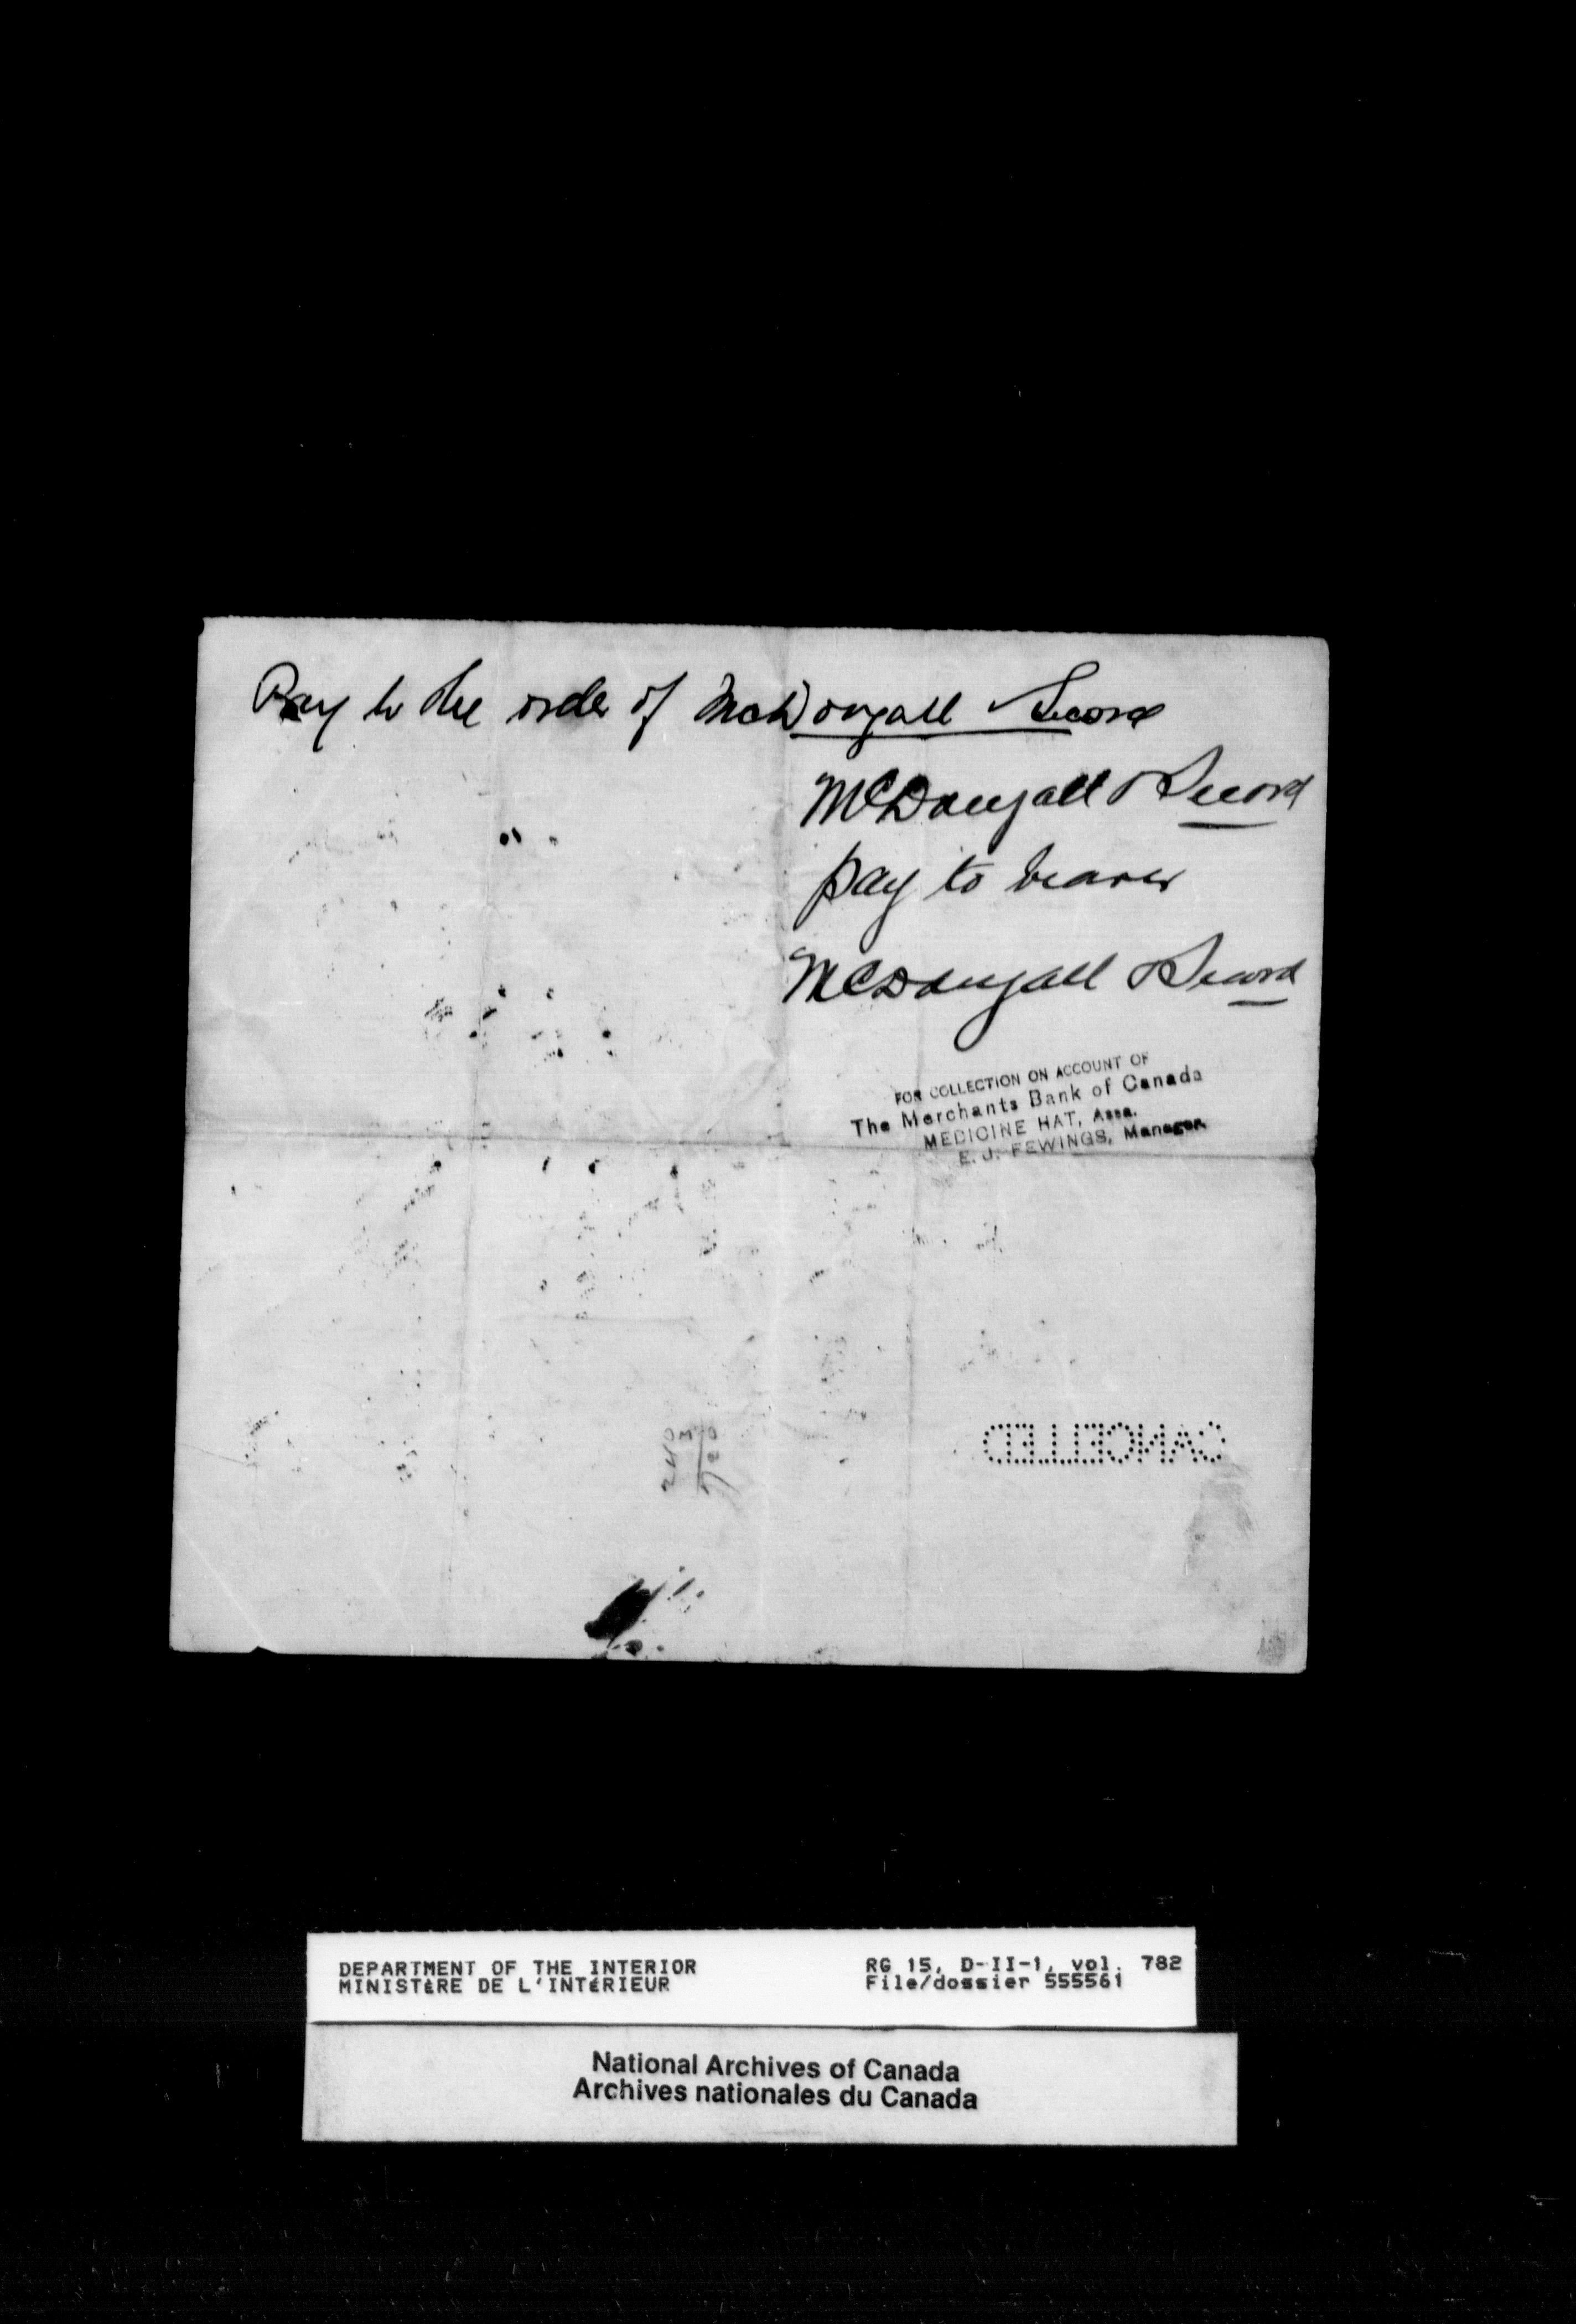 Pay to the order of McDougall & Secord
McDougall & Secord
pay to bearer
McDougall & Secord
FOR COLLECTION ON ACCOUNT OF
The Merchants Bank of Canada
MEDICINE HAT, Assa.
E. J. FEWINGS, Manager.
240
3
720
CANCELLED
DEPARTMENT OF THE INTERIOR RG 15, D-II-1, vol. 782
MINISTÈRE DE L'INTÉRIEUR File/dossier 555561
National Archives of Canada
Archives nationales du Canada